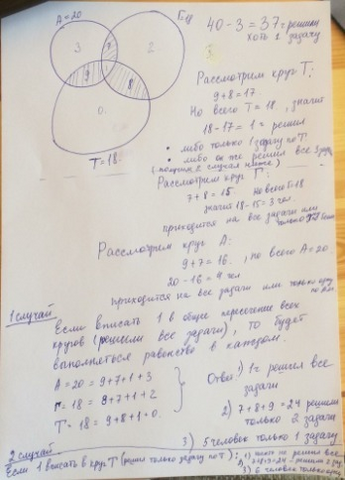 A=20
Г=18
3
7
2
1
9
8
0
T=18.
40-3=37 = решили
хоть 1 задачу
Рассмотрим круг T:
9+8=17
Но всего T=18, значит
18-17=1 = решил
• либо только 1 задачу по T
• либо он же решил все 3
Рассмотрим круг Г:
7+8=15. Но всего Г=18
значит 18-15=3 чел
приходится на все задачи или
только
Рассмотрим круг A:
9+7=16. , но всего A=20.
20-16=4 чел
приходится на все задачи или только одну
1 случай
Если вписать 1 в общее пересечение всех
кругов (решили все задачи), то будет
выполняться равенство в каждом.
A=20=9+7+1+3
Г=18=8+7+1+2
T=18=9+8+1+0.
Ответ: 1) 1 решил все
задачи
2) 7+8+9=24 решили
только 2 задачи
3) 5 человек только 1 задачу
2 случай
Если 1 вписать в круг T (решил только задачу по T):